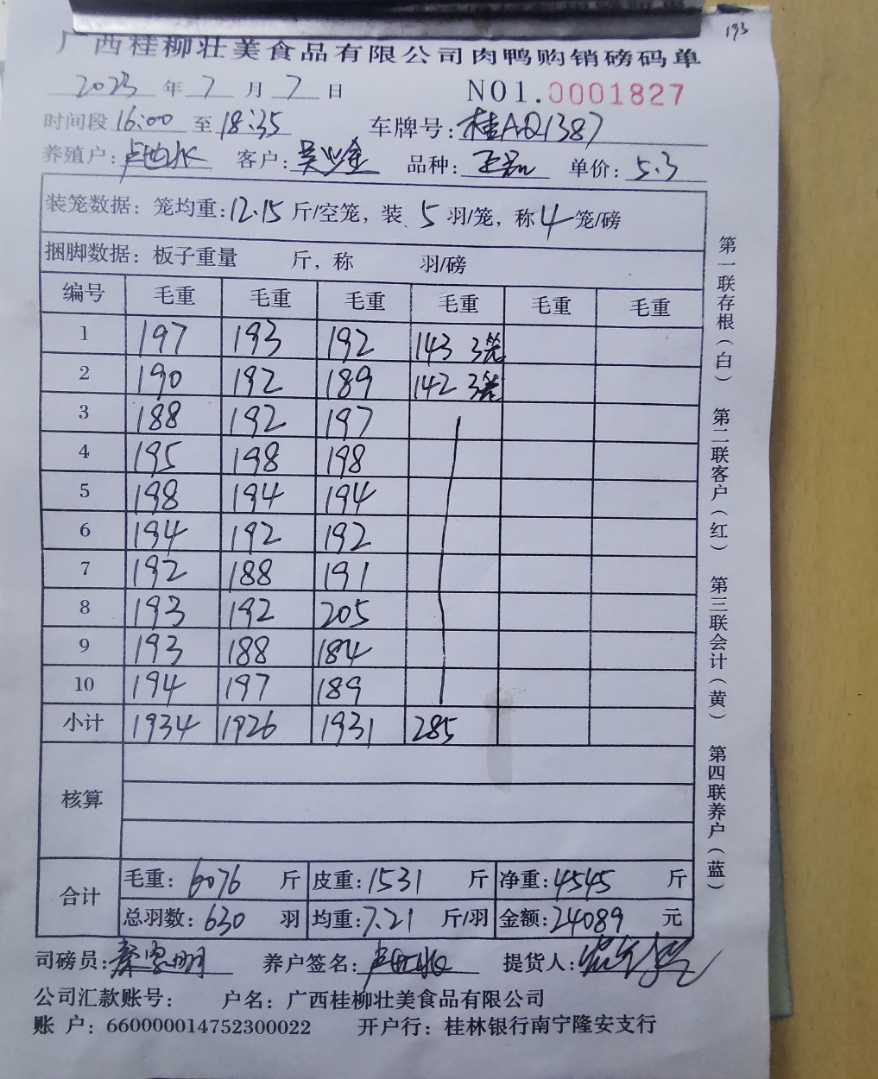 193
广西桂柳壮美食品有限公司肉鸭购销磅码单
2023 年 7 月 7 日 NO1.0001827
时间段 16:00 至 18:35 车牌号: 桂AQ1387
养殖户: 客户: 品种: 单价: 5.3
装笼数据: 笼均重: 12.15 斤/空笼, 装 5 羽/笼, 称 4 笼/磅
捆脚数据: 板子重量 斤, 称 羽/磅
编号 毛重 毛重 毛重 毛重 毛重 毛重
1 197 193 192 143 3笼
2 190 192 189 142 3笼
3 188 192 197
4 195 198 198
5 198 194 194
6 194 192 192
7 192 188 191
8 193 192 205
9 193 188 184
10 194 197 189
小计 1934 1926 1931 285
核算
合计 毛重: 6076 斤 皮重: 1531 斤 净重: 4545 斤
总羽数: 630 羽 均重: 7.21 斤/羽 金额: 24089 元
司磅员: 养户签名: 提货人:
公司汇款账号: 户名: 广西桂柳壮美食品有限公司
账 户: 660000014752300022 开户行: 桂林银行南宁隆安支行
第一联存根(白) 第二联客户(红) 第三联会计(黄) 第四联养户(蓝)